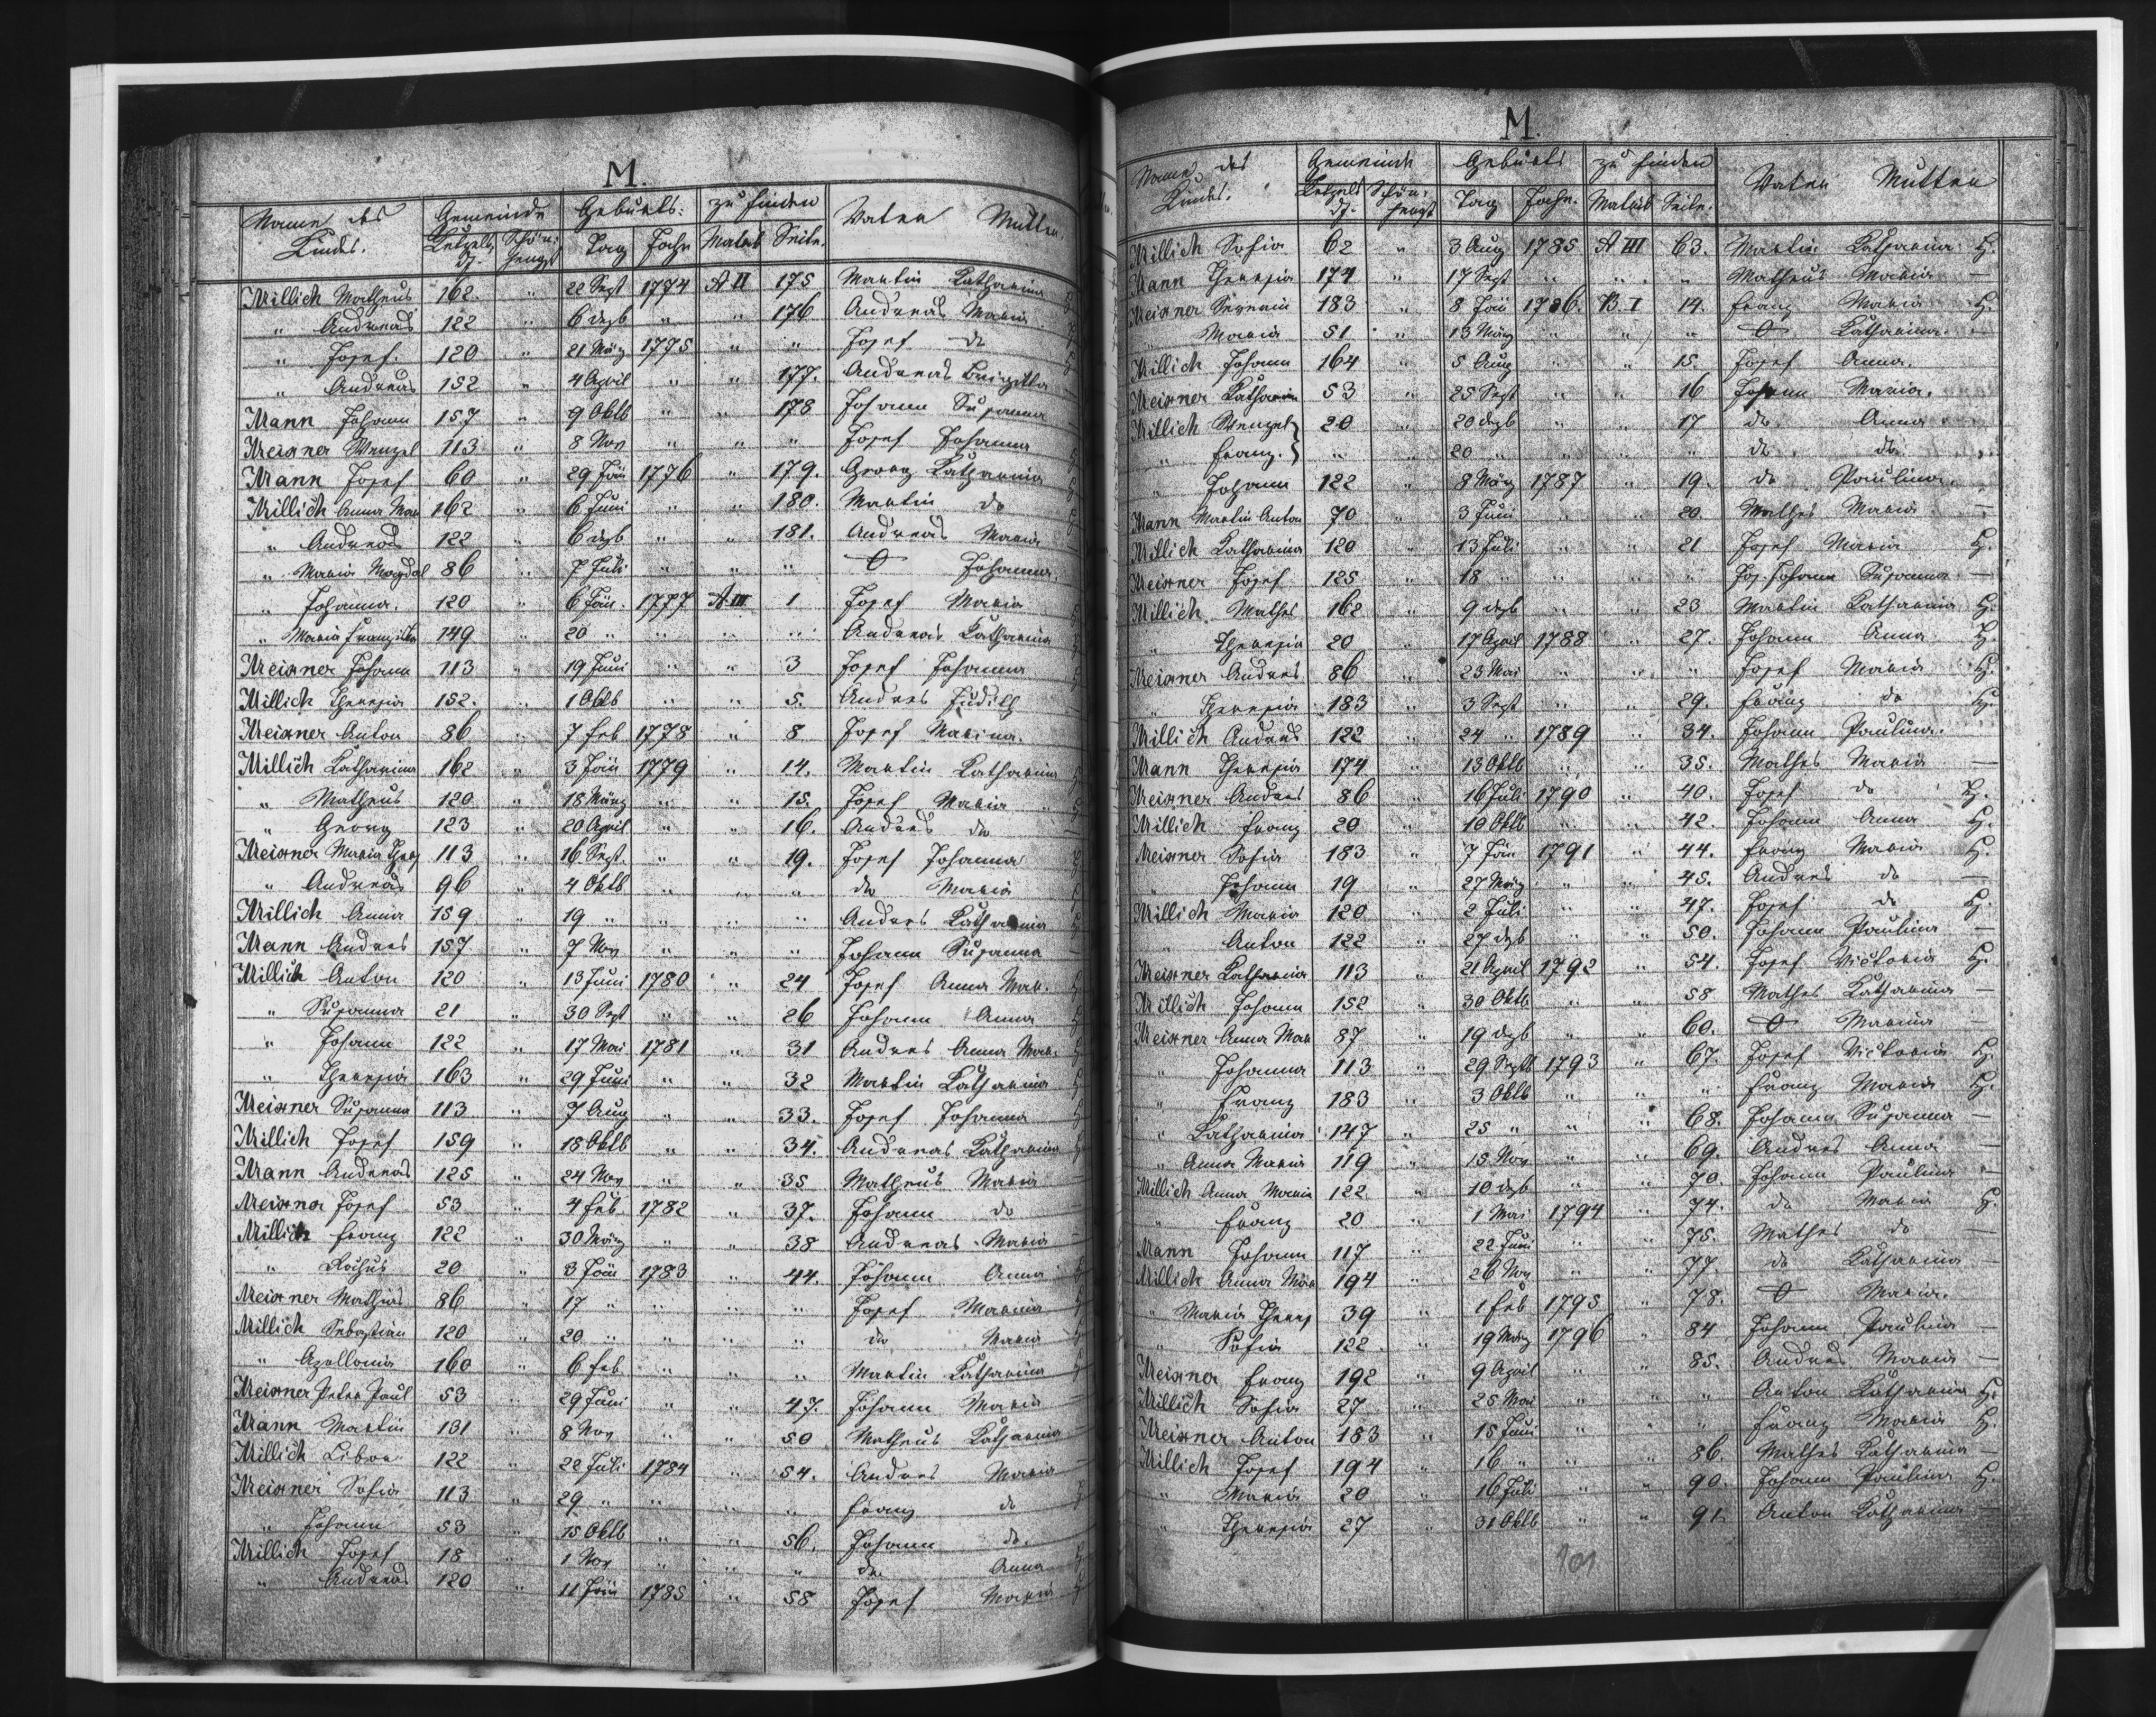 M.
Name des Kindes. Gemeinde Geburts- zu finden Vater Mutter
Ketzelsdf. Schönhengst Tag Jahr Matrik Seite.
Millich Matheus 162. " 22 Sept 1774 A II 175 Martin Katharina
" Andreas 122 " 6 dezb " " 176 Andreas Maria
" Josef. 120 " 21 März 1775 " " Josef do
" Andreas 152 " 4 April " " 177. Andreas Brigitta
Mann Johann 157 " 9 Oktb " " 178 Johann Susanna
Meixner Wenzel 113 " 8 Nov " " " Josef Johanna
Mann Josef 60 " 29 Jän 1776 " 179. Georg Katharina
Millich Anna Mar 162 " 6 Juni " " 180. Martin do
" Andreas 122 " 6 dezb " " 181. Andreas Maria
" Maria Magdal 86 " 7 Juli " " " O Johanna.
" Johanna. 120 " 6 Jän. 1777 A III 1 Josef Maria
" Maria Franziska 149 " 20 " " " " Andreas Katharina
Meixner Johann 113 " 19 Juni " " 3 Josef Johanna
Millich Theresia 152. " 1 Oktb " " 5. Andres Judith
Meixner Anton 86 " 7 feb 1778 " 8 Josef Marina.
Millich Katharina 162 " 3 Jän 1779 " 14. Martin Katharina
" Matheus 120 " 18 März " " 15. Josef Maria
" Georg 123 " 20 April " " 16. Andres do
Meixner Maria Theres 113 " 16 Sept. " " 19. Josef Johanna
" Andreas 96 " 4 Oktb " " " do Maria
Millich Anna 159 " 19 " " " " Andres Katharina
Mann Andres 157 " 7 Nov " " " Johann Susanna
Millich Anton 120 " 13 Juni 1780 " 24 Josef Anna Mar.
" Susanna 21 " 30 Sept " " 26 Johann Anna
" Johann 122 " 17 Mai 1781 " 31 Andres Anna Mar.
" Theresia 163 " 29 Juni " " 32 Martin Katharina
Meixner Susanna 113 " 7 Aug " " 33. Josef Johanna
Millich Josef 159 " 18 Oktb " " 34. Andreas Katharina
Mann Andreas 125 " 24 Nov " " 35 Matheus Maria
Meixner Josef 53 " 4 feb 1782 " 37. Johann do
Millich Franz 122 " 30 März " " 38 Andreas Maria
" Rochus 20 " 3 Jän 1783 " 44. Johann Anna
Meixner Mathias 86 " 17 " " " " Josef Marina
Millich Sebastian 120 " 20 " " " " do Maria
" Apollonia 160 " 6 feb " " " Martin Katharina
Meixner Peter Paul 53 " 29 Juni " " 47. Johann Maria
Mann Martin 131 " 8 Nov " " 50 Matheus Katharina
Millich Libor 122 " 22 Juli 1784 " 54. Andres Maria
Meixner Sofia 113 " 29 " " " " Franz do
" Johann 53 " 15 Oktb " " 56. Johann do.
Millich Josef 18 " 1 Nov " " " do. Anna
" Andreas 120 " 11 Jän 1785 " 58 Josef Maria
M.
Name des Kindes. Gemeinde Geburts zu finden Vater Mutter
Ketzelsdf. Schönhengst Tag Jahr. Matrik Seite.
Millich Sofia 62 " 3 Aug 1785 A III 63. Martin Katharina H.
Mann Theresia 174 " 17 Sept " " " Matheus Maria —
Meixner Severin 183 " 8 Jän 1786. B. I 14. Franz Maria H.
" Maria 51 " 13 März " " " O Katharina. —
Millich Johann 164 " 5 Aug " " 15. Josef Anna.
Meixner Katharina 53 " 25 Sept " " 16 Johann Maria.
Millich Wenzel } 20 " 20 dezb " " 17 do Anna
" Franz. } " 20 " " " " do do
" Johann 122 " 8 März 1787 " 19. do Paulina.
Mann Martin Anton 70 " 3 Juni " " 20. Mathes Maria —
Millich Katharina 120 " 13 Juli " " 21 Josef Maria H.
Meixner Josef 125 " 18 " " " " Jos. Johann Susanna —
Millich Mathes 162 " 9 dezb " " 23 Martin Katharina H.
" Theresia 20 " 17 April 1788 " 27. Johann Anna H.
Meixner Andres 86 " 23 Mai " " " Josef Maria H.
" Theresia 183 " 3 Sept " " 29. Franz do H.
Millich Andres 122 " 24 " 1789 " 34. Johann Paulina.
Mann Theresia 174 " 13 Oktb " " 35. Mathes Maria —
Meixner Andres 86 " 16 Juli 1790 " 40. Josef do H.
Millich Franz 20 " 10 Oktb " " 42. Johann Anna H.
Meixner Sofia 183 " 7 Jän 1791 " 44. Franz Maria H.
" Johann 19 " 27 März " " 45. Andres do —
Millich Maria 120 " 2 Juli " " 47. Josef do H.
" Anton 122 " 27 dezb " " 50. Johann Paulina —
Meixner Katharina 113 " 21 April 1792 " 54. Josef Victoria H.
Millich Johann 152 " 30 Oktb " " 58 Mathes Katharina —
Meixner Anna Mar 87 " 19 dezb " " 60. O Marina —
" Johanna 113 " 29 Septb 1793 " 67. Josef Victoria H.
" Franz 183 " 3 Oktb " " " Franz Maria H.
" Katharina 147 " 25 " " " 68. Johann Susanna —
" Anna Maria 119 " 15 Nov " " 69. Andres Anna —
Millich Anna Maria 122 " 10 dezb " " 70. Johann Paulina —
" Franz 20 " 1 Mai 1794 " 74. do Maria H.
Mann Johann 117 " 22 Juni " " 75. Mathes do —
Millich Anna Mar 194 " 26 Nov " " 77 do Katharina —
" Maria Theres 39 " 1 feb 1795 " 78. O Maria.
" Sofia 122 " 19 März 1796 " 84 Johann Paulina —
Meixner Franz 192 " 9 April " " 85. Andres Maria —
Millich Sofia 27 " 25 Mai " " " Anton Katharina H.
Meixner Anton 183 " 15 Juni " " " Franz Maria H.
Millich Josef 194 " 16 " " " 86. Mathes Katharina —
" Maria 20 " 16 Juli " " 90. Johann Paulina H.
" Theresia 27 " 31 Oktb " " 91 Anton Katharina —
101